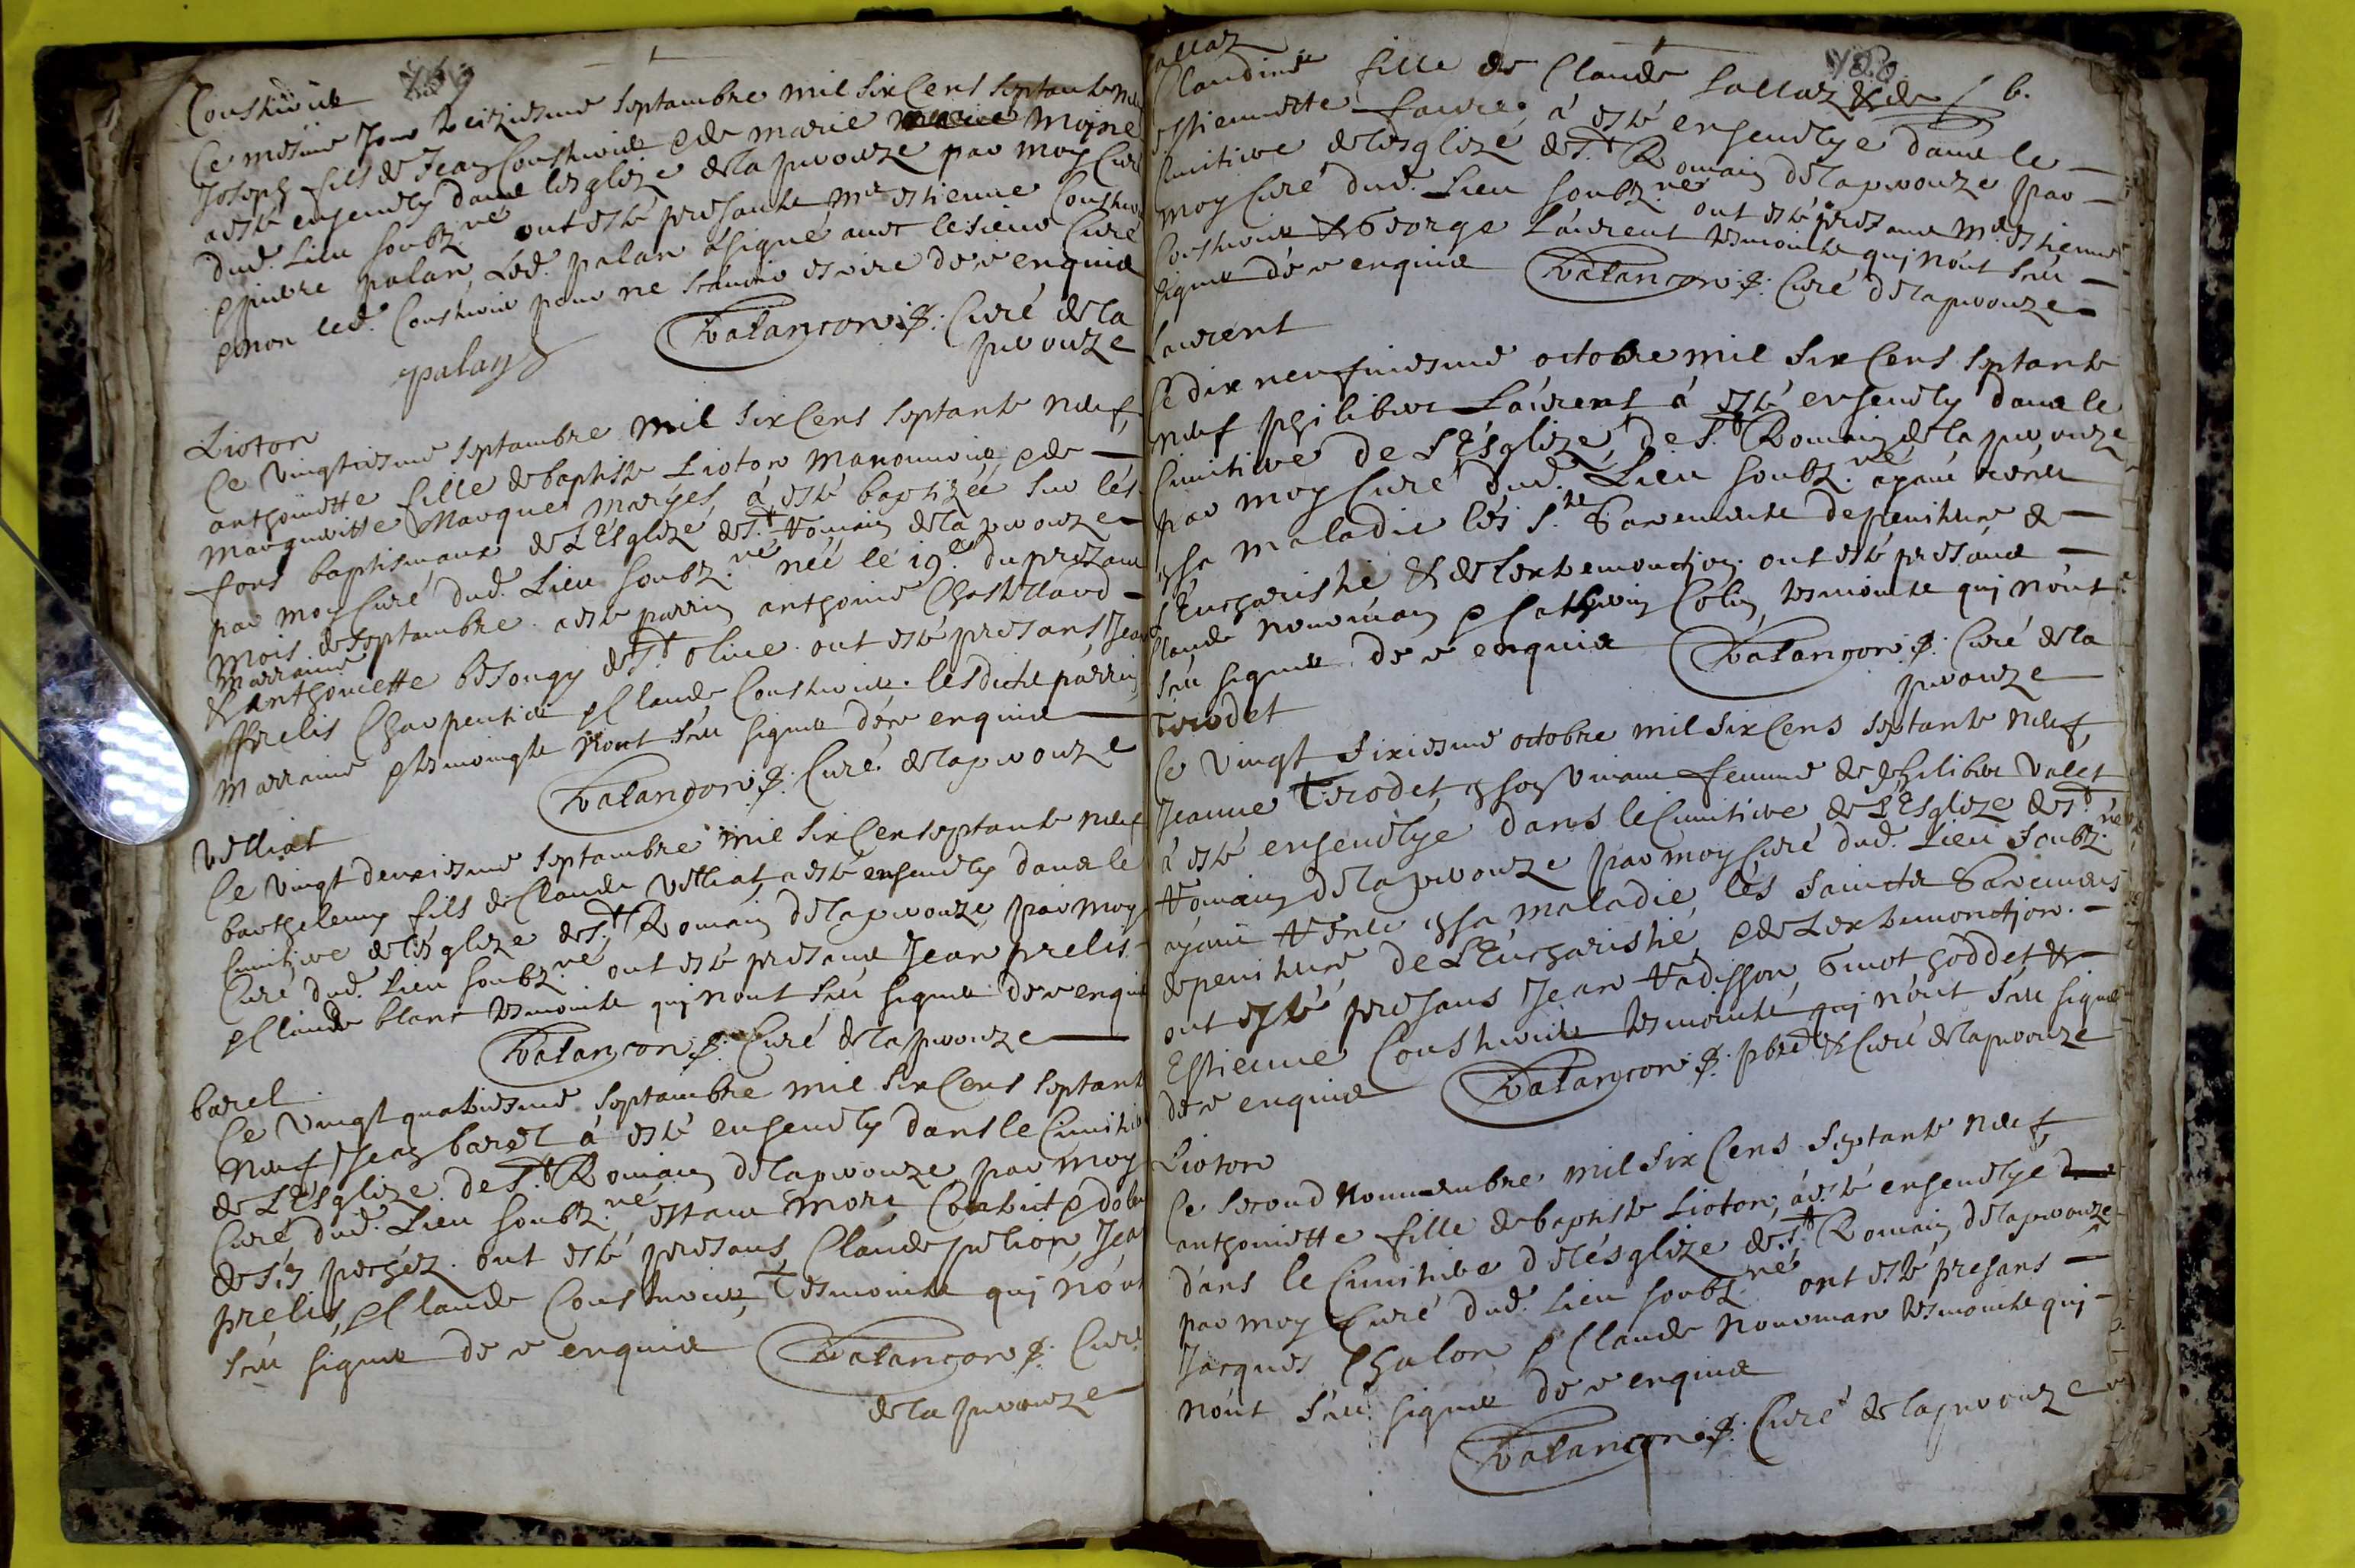 Cousturier
Ce mesme Jour treiziesme Septambre mil six Cens septante neuf
Joseph fils de Jean Cousturier & de marie moine
a esté enseuely dans lesglize de la peyrouze par moy Curé
dud. Lieu soubz.né ont esté presants Mre estienne Cousturier
& pierre palan, Led. palan a signé auec le sieur Curé
& non led. Cousturier pour ne scauoir escrire de ce enquis
Balancon p. Curé de la
peyrouze
palan
Lioton
Ce Vingtiesme Septambre mil six Cens septante neuf
anthoinette fille de baptiste Lioton manouurier & de
margueritte Marque mariés, á esté baptizée sur lés
fons baptismaux de L'Esglize de St. Romain de la peyrouze
par moy Curé dud. Lieu soubz.né née le 19.e du presant
mois de Septambre. a esté parrin anthoine Chastillard
Marraine
& anthoinette besongy de St. oliue. ont esté presans Jean
prelis Charpentier & Claude Cousturier. lesdicts parrin
marraine & tesmoingts n'ont sceu signer de ce enquis
Balancon p. Curé de la peyrouze
Velliat
Ce Vingt deuxiesme Septambre mil six Cens septante neuf
barthelemy fils de Claude Velliat, a esté enseuely dans le
Cimitiere de lesglize de St. Romain de la peyrouze par moy
Curé dud. Lieu soubz.né ont esté presans Jean prelis
& Claude blanc tesmoints qui nont sceu signer de ce enquis
Balancon p. Curé de la peyrouze
barel
Ce Vingt quatriesme Septambre mil six Cens septante
Neuf Jean barel á esté enseuely dans le Cimitiere
de L'Esglize de St. Romain de la peyrouze par moy
Curé dud. Lieu soubz.né estant mort Contrit & dolent
de sés pechéz. ont esté presans Claude pelion, Jean
prelis, & Claude Cousturier, Tesmoints qui nónt
sceu signer de ce enquis Balancon p. Curé
de la peyrouze
6.
Claudine fille de Claude Sallaz & de
estiennette faure, á esté enseuelye dans le
Cimitiere de lésglize de St. Romain de la peyrouze par
moy Curé dud. Lieu soubz.né ont esté presans Mre estienne
Cousturier & George Laurent tesmoints qui nónt sceu
signer de ce enquis Balancon p. Curé de la peyrouze
Laurent
Ce dix neufuiesme octobre mil six Cens septante
neuf philibert Laurens á esté enseuely dans le
Cimitiere de L'Esglize de St. Romain de la peyrouze
par moy Curé dud. Lieu soubz.né ayant receu
en sa maladie lés Sts. Sacrements de penitence &
l'Eucharistie & de lextremonction. ont esté presans
Claude nouuman & Catherin Colin, tesmoints qui nónt
sceu signer de ce enquis Balancon p. Curé de la
peyrouze
Terodet
Ce Vingt sixiesme octobre mil six Cens septante neuf
Jeanne Terodet, en son Viuant femme de philibert Valet
á esté enseuelye dans le Cimitiere de L'Esglize de St.
Romain de la peyrouze par moy Curé dud. Lieu soubz.né
ayant receu en sa maladie lés saincts Sacremens
de penitence, de L'Eucharistie, & de Lextremonction.
ont esté presans Jean Radisson, Guiot goddet &
Estienne Cousturier tesmoints qui nónt sceu signer
de ce enquis Balancon p. pbre & Curé de la peyrouze
Lioton
Ce second Nouuembre mil six Cens septante neuf
anthoinette fille de baptiste Lioton, á esté enseuelye
dans le Cimitiere de lésglize de St. Romain de la peyrouze
par moy Curé dud. Lieu soubz.né ont esté presans
Jacques Chalon & Claude Nouuman tesmoints qui
nónt sceu signer de ce enquis
Balancon p. Curé de la peyrouze